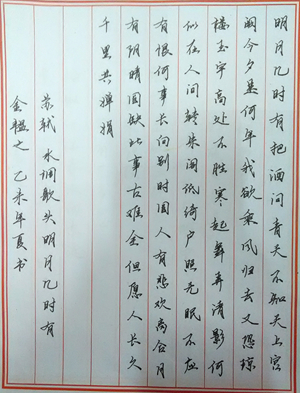 明月几时有把酒问青天不知天上宫
阙今夕是何年我欲乘风归去又恐琼
楼玉宇高处不胜寒起舞弄清影何
似在人间转朱阁低绮户照无眠不应
有恨何事长向别时圆人有悲欢离合月
有阴晴圆缺此事古难全但愿人长久
千里共婵娟
苏轼 水调歌头 明月几时有
金韫之 乙未年夏书